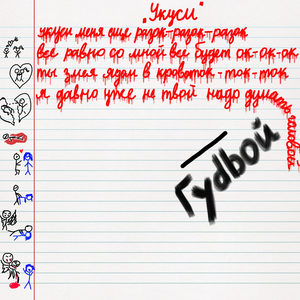 „Укуси"
укуси меня ещё разок-разок-разок
всё равно со мной всё будет ок-ок-ок
ты змея ядам в кровоток-ток-ток
я давно уже не твой надо думать головой
Гудбой